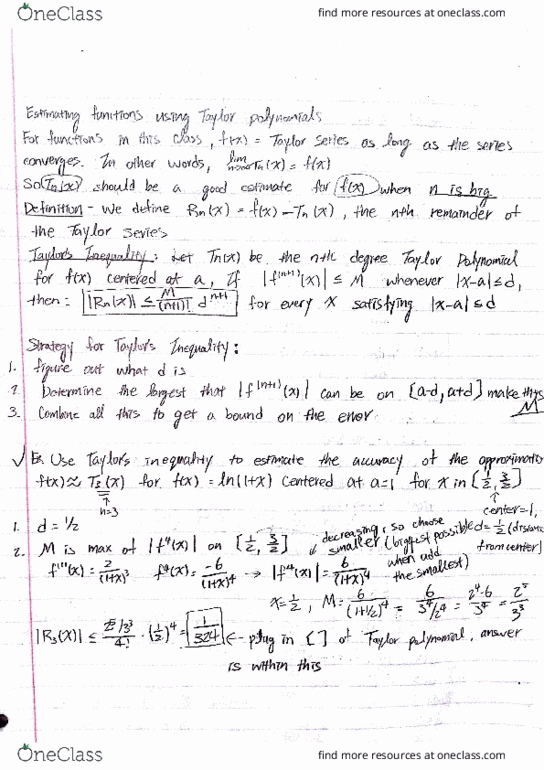 OneClass find more resources at oneclass.com
Estimating functions using Taylor polynomials
For functions in this class, f(x) = Taylor series as long as the series
converges. In other words, lim n→∞ Tn(x) = f(x)
So Tn(x) should be a good estimate for f(x) when n is big
Definition - We define Rn(x) = f(x) - Tn(x), the nth remainder of
the Taylor Series
Taylor's Inequality: Let Tn(x) be the nth degree Taylor Polynomial
for f(x) centered at a, If |f^(n+1)(x)| ≤ M whenever |x-a| ≤ d,
then: |Rn(x)| ≤ M/(n+1)! d^(n+1) for every x satisfying |x-a| ≤ d
Strategy for Taylor's Inequality:
1. figure out what d is
2. Determine the largest that |f^(n+1)(x)| can be on [a-d, a+d] make this M
3. Combine all this to get a bound on the error
✓ Ex. Use Taylor's inequality to estimate the accuracy of the approximation
f(x) ≈ T3(x) for f(x) = ln(1+x) centered at a=1 for x in [1/2, 3/2]
n=3
center=1,
1. d = 1/2
decreasing, so choose smaller (biggest possible when add the smallest)
d = 1/2 (distance from center)
2. M is max of |f⁴(x)| on [1/2, 3/2]
f'''(x) = 2/(1+x)³ f⁴(x) = -6/(1+x)⁴ → |f⁴(x)| = 6/(1+x)⁴
x = 1/2, M = 6/(1+1/2)⁴ = 6/(3⁴/2⁴) = 2⁴·6/3⁴ = 2⁵/3³
|R3(x)| ≤ (2⁵/3³)/4! · (1/2)⁴ = 1/324 ← plug in [ ] of Taylor polynomial, answer
is within this
OneClass find more resources at oneclass.com